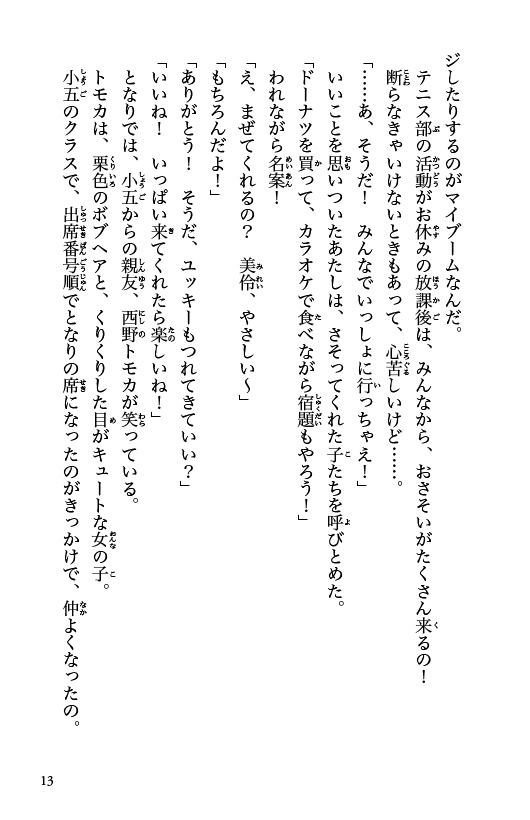 ジしたりするのがマイブームなんだ。
テニス部の活動がお休みの放課後は、みんなから、おさそいがたくさん来るの！
断らなきゃいけないときもあって、心苦しいけど……。
「……あ、そうだ！　みんなでいっしょに行っちゃえ！」
いいことを思いついたあたしは、さそってくれた子たちを呼びとめた。
「ドーナツを買って、カラオケで食べながら宿題もやろう！」
われながら名案！
「え、まぜてくれるの？　美伶、やさしい〜」
「もちろんだよ！」
「ありがとう！　そうだ、ユッキーもつれてきていい？」
「いいね！　いっぱい来てくれたら楽しいね！」
となりでは、小五からの親友、西野トモカが笑っている。
トモカは、栗色のボブヘアと、くりくりした目がキュートな女の子。
小五のクラスで、出席番号順でとなりの席になったのがきっかけで、仲よくなったの。
13